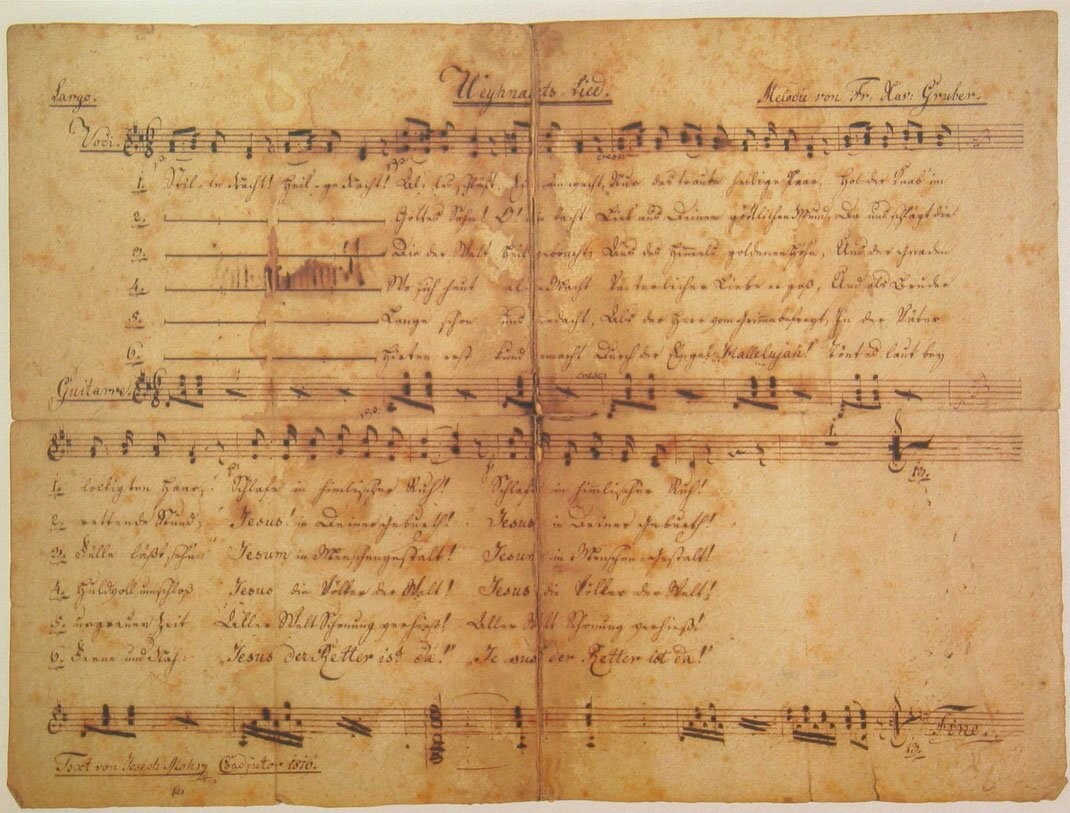 Weyhnachts-Lied.
Largo. Melodie von Fr. Xav: Gruber.
Voci.
1. Stille Nacht! Heilige Nacht! Alles schläft, Einsam wacht, Nur das traute heilige Paar, Holder Knab im
2. Gottes Sohn! O! wie lacht Lieb aus Deinem göttlichen Mund, Da uns schlägt die
3. Die der Welt Heil gebracht; Aus des Himmels goldenen Höhn, Aus der Gnaden
4. Wo sich heut alle Macht Väterlicher Liebe ergoß, Und als Bruder
5. Lange schon uns bedacht, Als der Herr vom Grimme befreyt, In der Väter
6. Hirten erst kund gemacht Durch der Engel „Hallelujah!" Tönt es laut bey
Guitarre.
cresc:
1. lockigten Haar; Schlafe in himlischer Ruh! Schlafe in himmlischer Ruh!
2. rettende Stund; Jesus! in Deiner Geburth! Jesus in Deiner Geburth!
3. Fülle läßt sehn Jesum in Menschengestalt! Jesum in Menschen Gestalt!
4. Huldvoll umschloß Jesus die Völker der Welt! Jesus die Völker der Welt!
5. urgrauer Zeit Aller Welt Schonung verhieß! Aller Welt Schonung verhieß!
6. Ferne und Nah: „Jesus der Retter ist da!" „Jesus der Retter ist da!"
Fine.
Text von Joseph Mohr Coadjutor 1816.